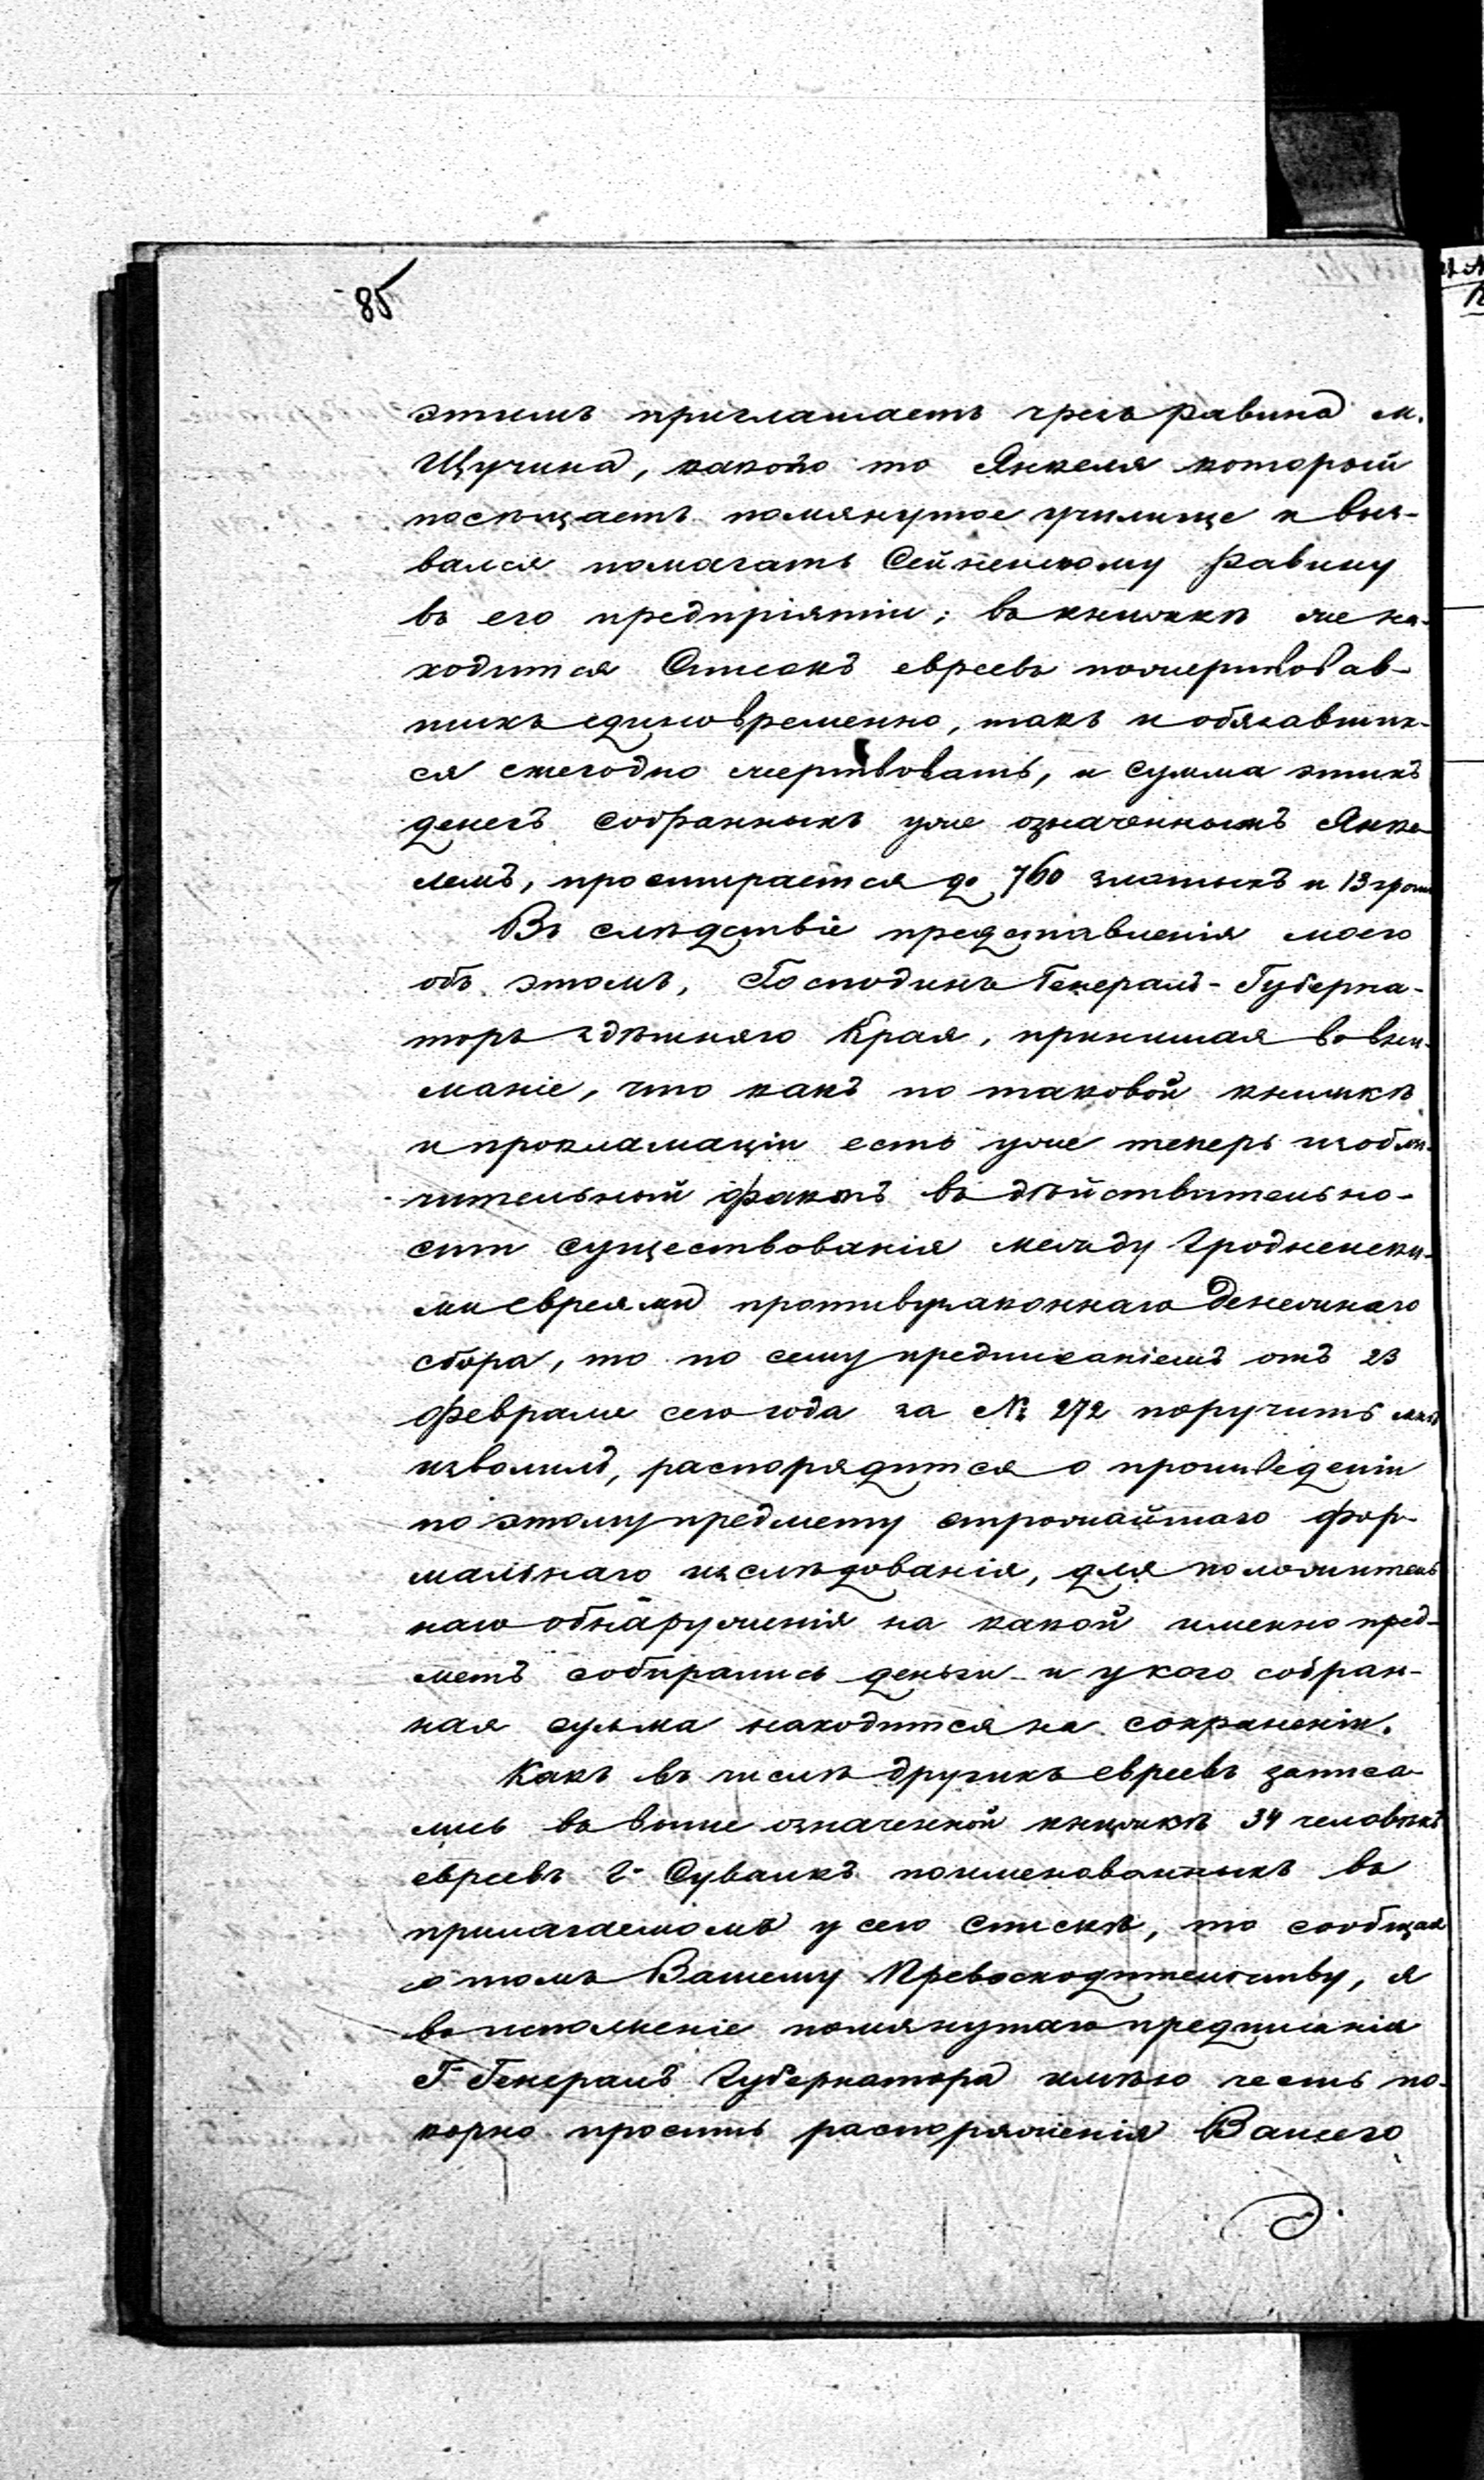 85
этимъ приглашаетъ чрезъ равина м.
Щучина, какого то Янкеля который
посѣщаетъ помянутое училище и выз-
вался помагать Сейненскому равину
въ его предпріятіи; въ книжкѣ же на-
ходится Списокъ евреевъ пожертвовав-
шихъ единовременно, такъ и обязавших-
ся ежегодно жертвовать, и сумма этихъ
денегъ собранныхъ уже означеннымъ Янке-
лемъ, простирается до 760 златыхъ и 13 грош
Въ слѣдствіе представленія моего
объ этомъ, Господинъ Генералъ-Губерна-
торъ здѣшняго Края, принимая во вни-
маніе, что какъ по таковой книжкѣ
и прокламаціи есть уже теперь изобли-
чительный фактъ въ дѣйствительно-
сти существованія между Гродненски-
ми евреями противузаконнаго денежнаго
сбора, то по сему предписаніемъ отъ 23
Февраля сего года за № 272 поручить мнѣ
изволилъ, распорядится о произведеніи
по этому предмету строжайшаго фор-
мальнаго изслѣдованія, для положитель
наго обнаруженія на какой именно пред-
метъ собирались деньги и у кого собран-
ная сумма находится на сохраненіи.
Какъ въ числѣ другихъ евреевъ записа-
лись въ выше означенной книжкѣ 34 человѣкъ
евреевъ г. Сувалкъ поименованныхъ въ
прилагаемомъ у сего спискѣ, то сообщая
о томъ Вашему Превосходительству, я
во исполненіе помянутаго предписанія
Г. Генералъ Губернатора имѣю честь по-
корно просить распоряженія Вашего